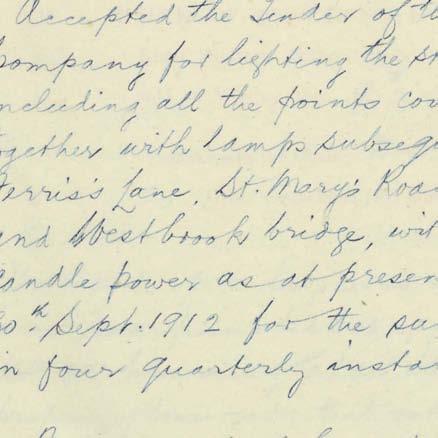 Accepted the Tender of the
Company for lighting the st
including all the points cov
together with lamps subsequ
Ferris's Lane, St. Mary's Road
and Westbrook bridge, wit
candle power as at presen
30th Sept. 1912 for the su
in four quarterly instal